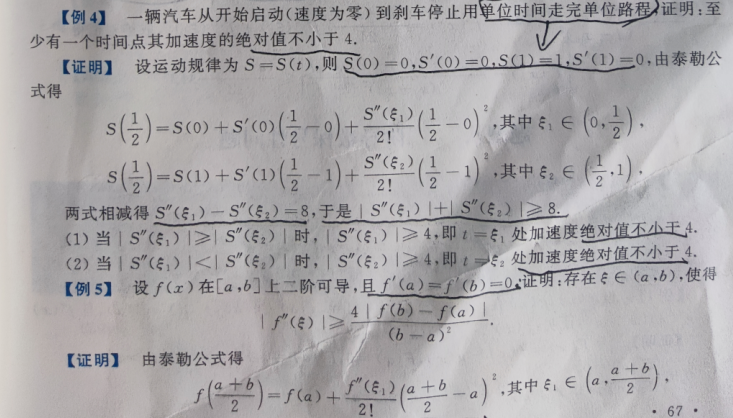 【例 4】 一辆汽车从开始启动(速度为零)到刹车停止用单位时间走完单位路程,证明:至
少有一个时间点其加速度的绝对值不小于 4.
【证明】 设运动规律为 S=S(t),则 S(0)=0,S′(0)=0,S(1)=1,S′(1)=0,由泰勒公
式得
S(1/2)=S(0)+S′(0)(1/2-0)+S″(ξ₁)/2!(1/2-0)²,其中 ξ₁∈(0,1/2),
S(1/2)=S(1)+S′(1)(1/2-1)+S″(ξ₂)/2!(1/2-1)²,其中 ξ₂∈(1/2,1),
两式相减得 S″(ξ₁)-S″(ξ₂)=8,于是 |S″(ξ₁)|+|S″(ξ₂)|≥8.
(1) 当 |S″(ξ₁)|≥|S″(ξ₂)| 时,|S″(ξ₁)|≥4,即 t=ξ₁ 处加速度绝对值不小于 4.
(2) 当 |S″(ξ₁)|<|S″(ξ₂)| 时,|S″(ξ₂)|≥4,即 t=ξ₂ 处加速度绝对值不小于 4.
【例 5】 设 f(x) 在[a,b]上二阶可导,且 f′(a)=f′(b)=0,证明:存在 ξ∈(a,b),使得
|f″(ξ)|≥4|f(b)-f(a)|/(b-a)².
【证明】 由泰勒公式得
f((a+b)/2)=f(a)+f″(ξ₁)/2!((a+b)/2-a)²,其中 ξ₁∈(a,(a+b)/2),
· 67 ·